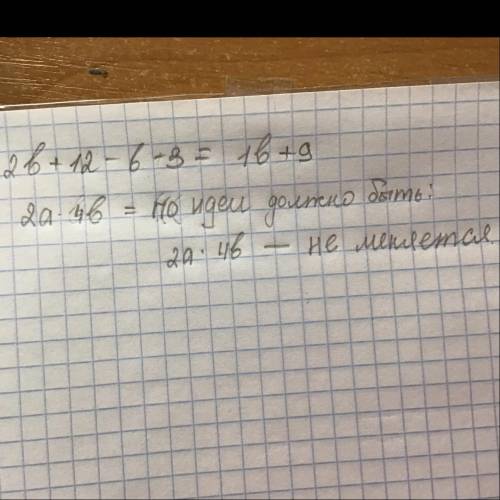 2b + 12 - b - 3 = 1b + 9
2a · 4b = По идеи должно быть:
2a · 4b — не меняется.